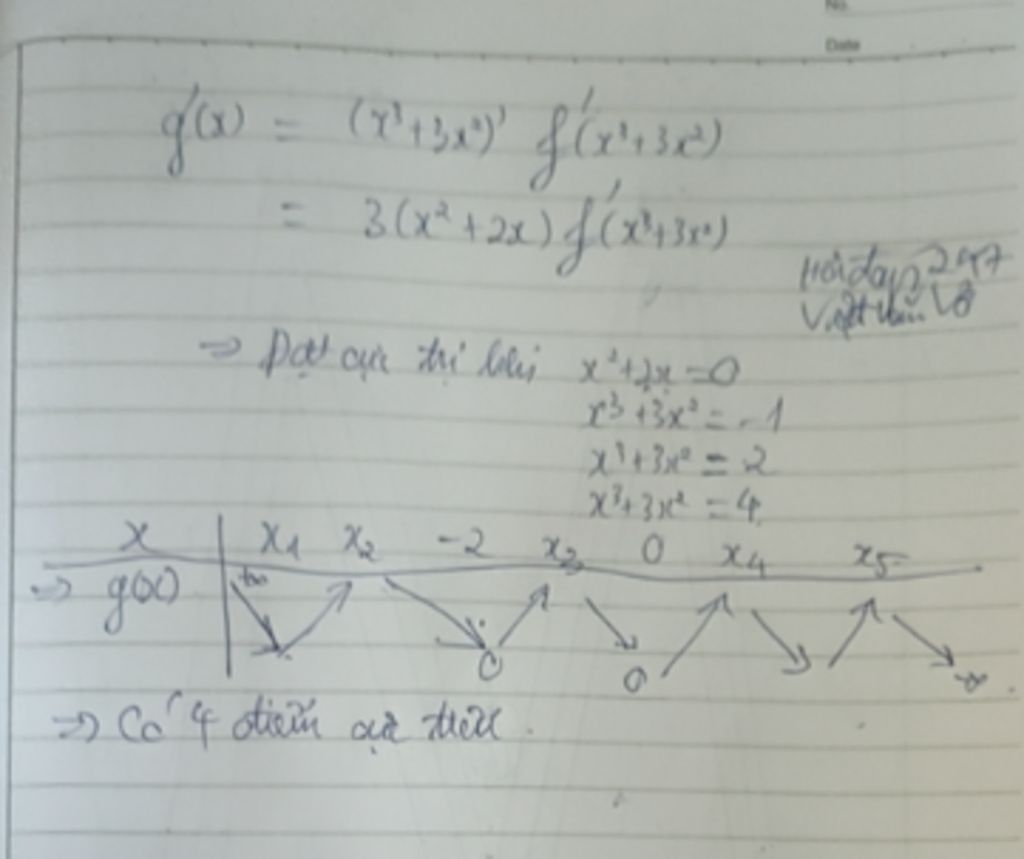 No.
Date
g'(x) = (x³+3x²)' f'(x³+3x²)
= 3(x²+2x) f'(x³+3x²)
Hỏi đáp 247
Việt Văn Võ
=> Đạt cực trị khi x²+2x=0
x³+3x²=-1
x³+3x²=2
x³+3x²=4
x x₁ x₂ -2 x₃ 0 x₄ x₅
=> g(x) +∞ 0 0 -∞
=> Có 4 điểm cực tiểu.